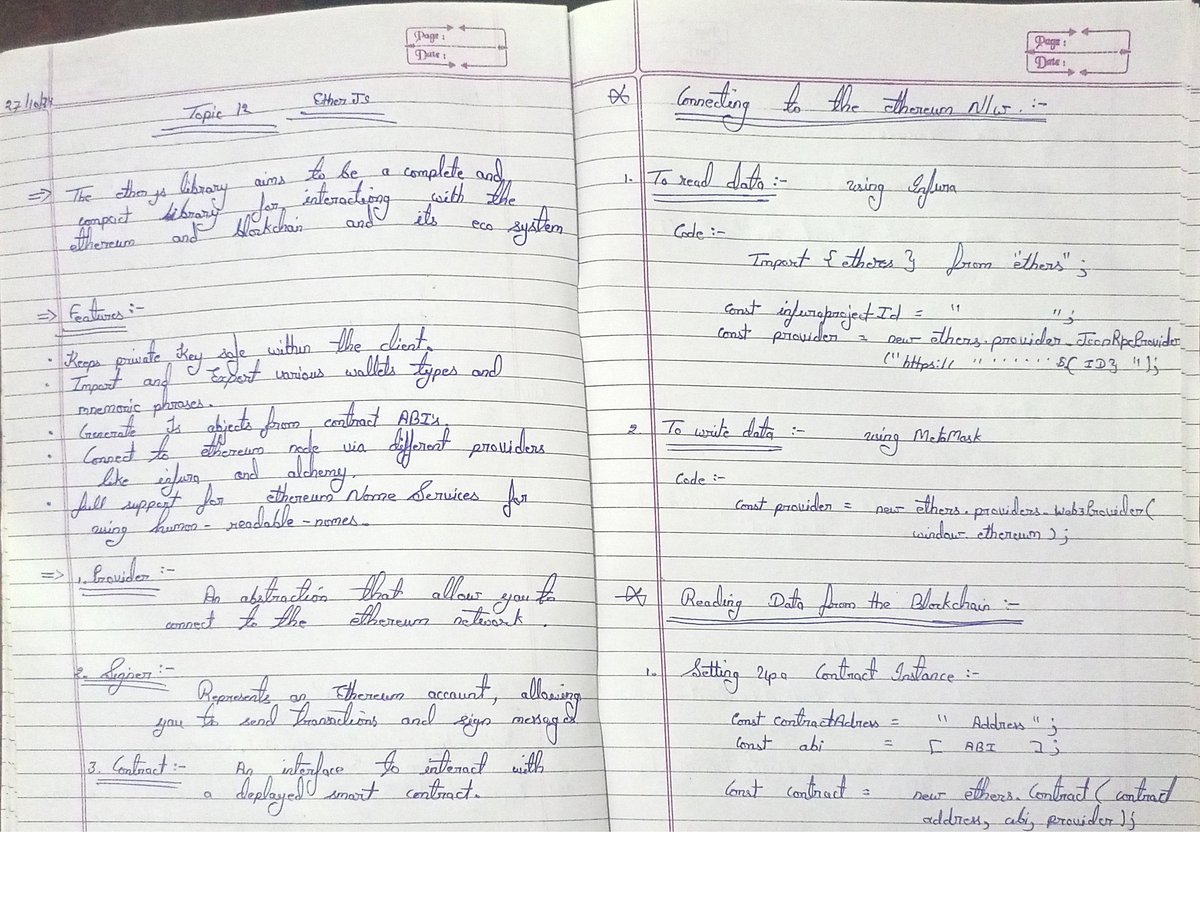 Page :
Date :
27/10/24
Topic 12 Ether Js
⇒ The ether js library aims to be a complete and
compact library for interactiong with the
ethereum and blockchain and its eco system
⇒ Features :-
· Keeps private Key safe within the client.
· Import and Export various wallets types and
mnemonic phrases.
· Generate Js objects from contract ABI's.
· Connect to ethereum node via different providers
like infura and alchemy.
· full support for ethereum Name Services for
using human-readable-names.
⇒ 1. Provider :-
An abstraction that allow you to
connect to the ethereum network.
2. Signer :-
Represents an Ethereum account, allowing
you to send transactions and sign messages
3. Contract :- An interface to interact with
a deployed smart contract.
Page :
Date :
Connecting to the ethereum N/w. :-
1. To read data :- using Infura
Code :-
Import {ethers} from "ethers" ;
const infuraprojectId = " " ;
const provider = new ethers.provider.JsonRpcProvider
("https:// " ...... ${ID} ");
2. To write data :- using MetaMask
Code :-
const provider = new ethers.providers.Web3Provider(
window.ethereum);
Reading Data from the Blockchain :-
1. Setting up a Contract Instance :-
Const contractAdress = " Address " ;
Const abi = [ ABI ] ;
Const contract = new ethers.Contract( contract
address, abi, provider);